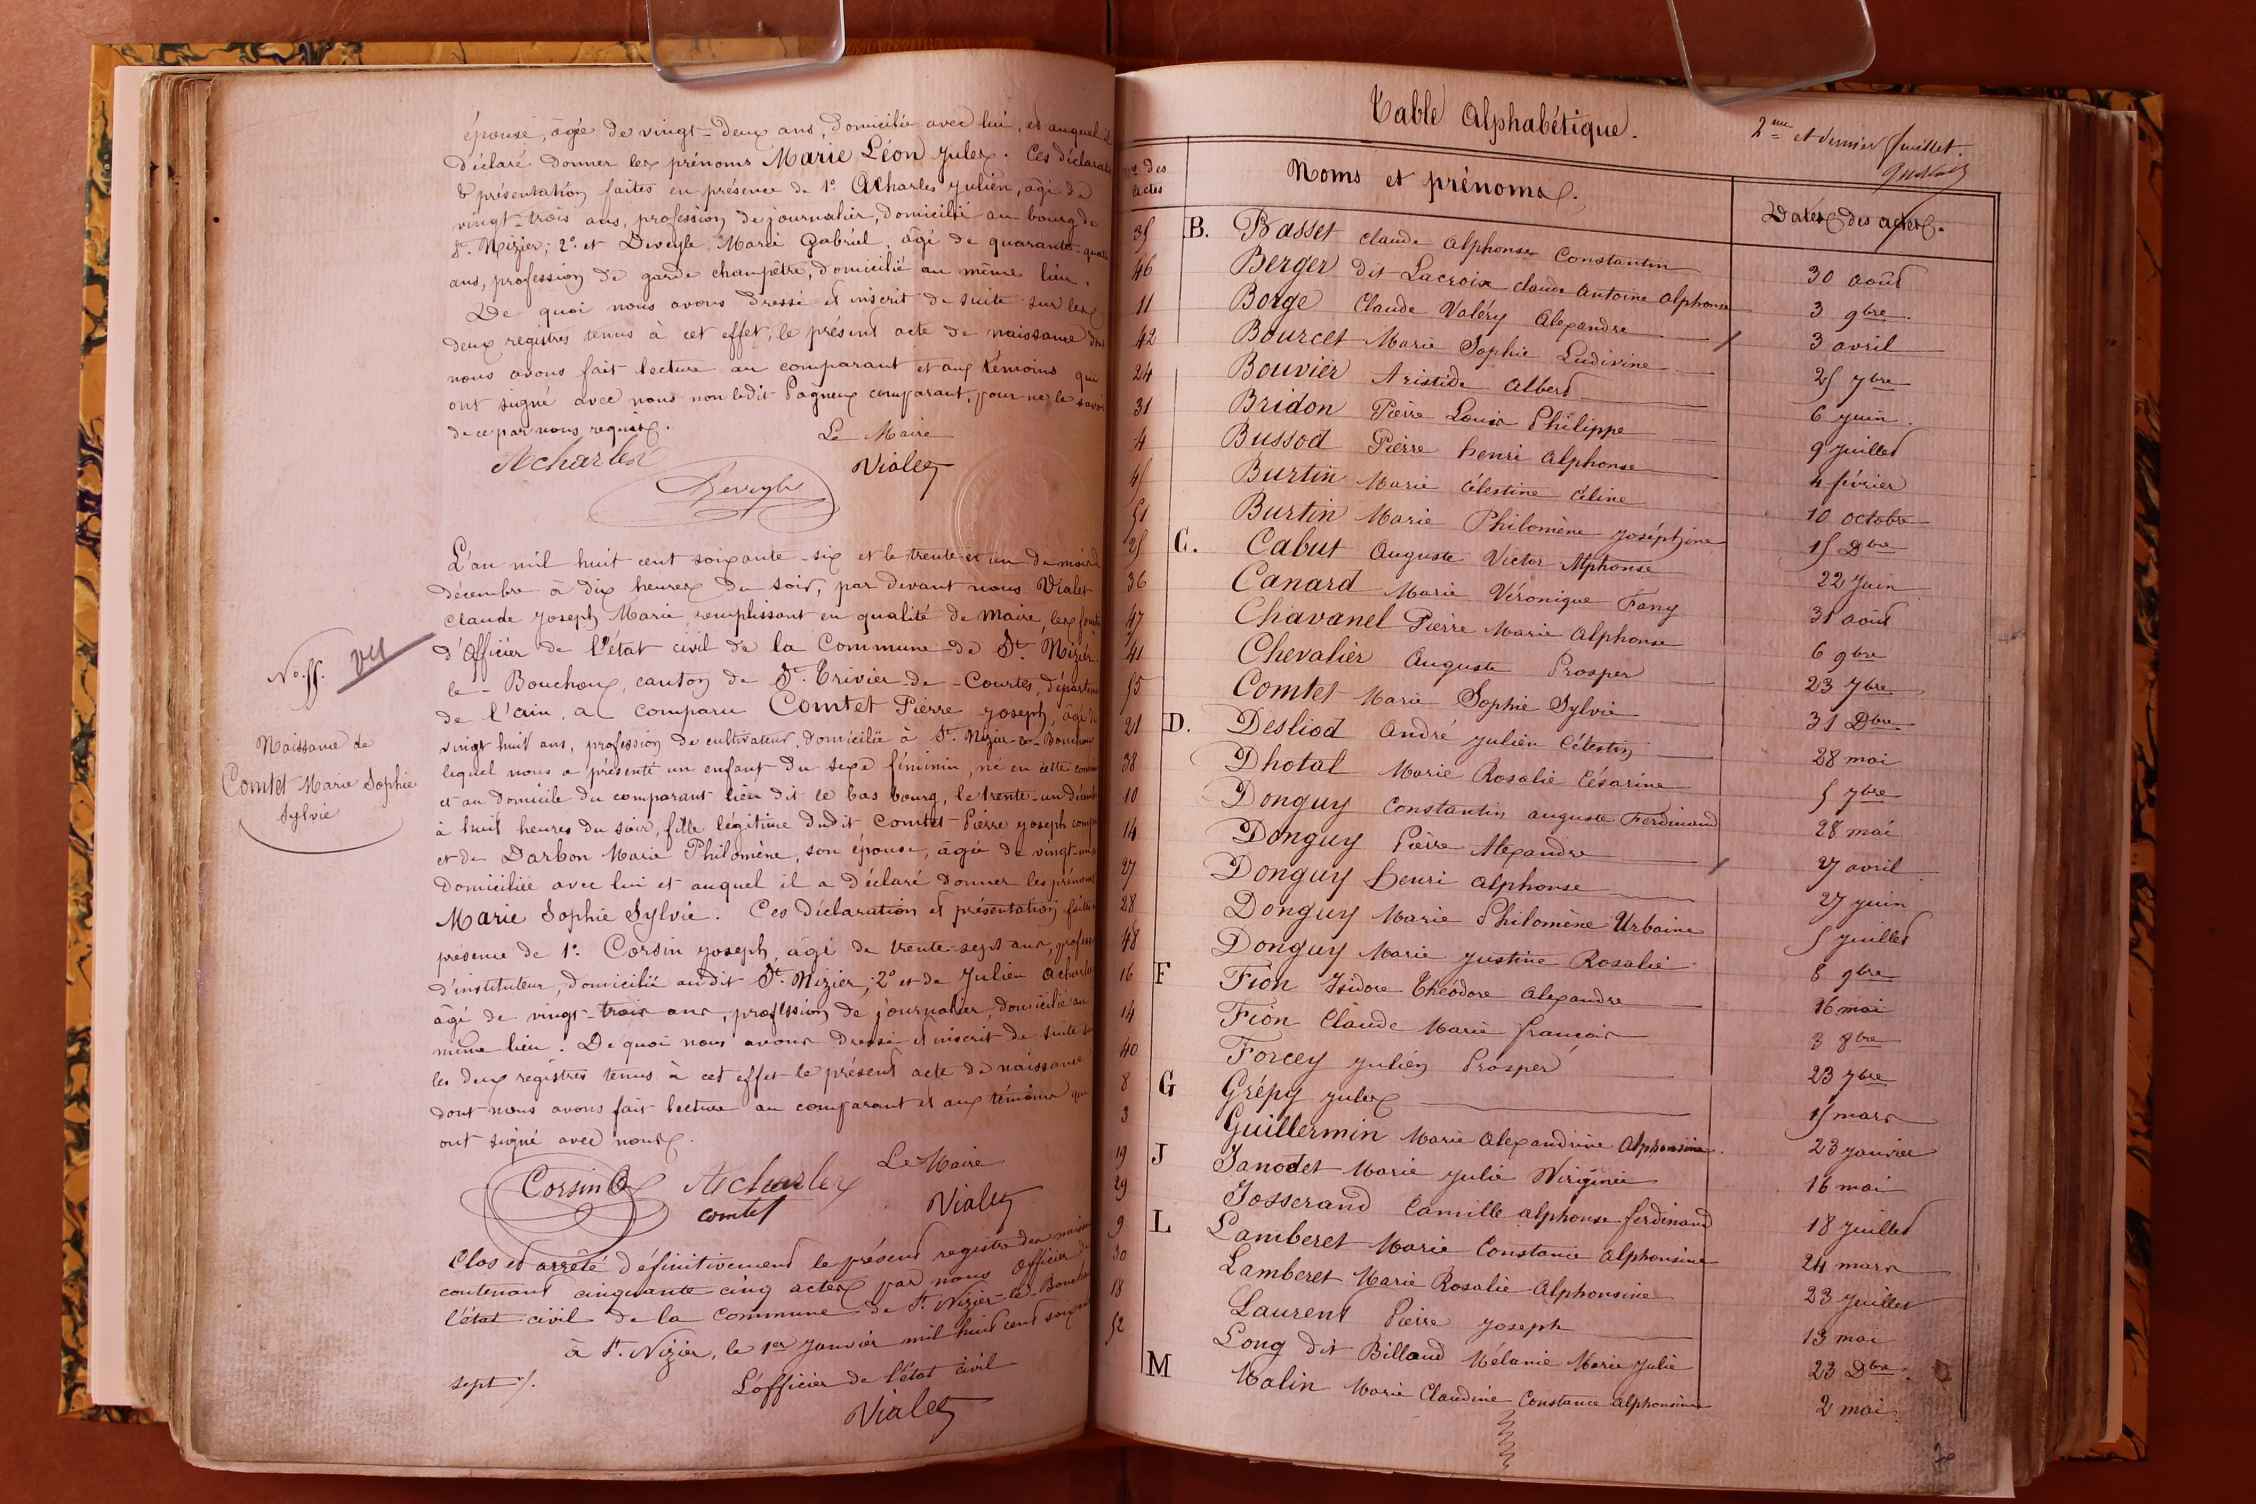 épouse, âgée de vingt-deux ans, domiciliée avec lui, et auquel il
déclaré donner les prénoms Marie Léon Jules. Ces déclarat
& présentation faites en présence de 1º. Acharles Julien, âgé de
vingt-trois ans, profession de journalier, domicilié au bourg de
St. Nizier; 2º. et Deveyle Marie Gabriel, âgé de quarante-quat
ans, profession de garde champêtre, domicilié au même lieu.
De quoi nous avons dressé et inscrit de suite sur les
deux registres tenus à cet effet, le présent acte de naissance dont
nous avons fait lecture au comparant et aux témoins qui
ont signé avec nous non ledit Pagneux comparant, pour ne le savoir
de ce par nous requis.
Le Maire
Acharles
Vialet
Deveyle
L'an mil huit cent soixante-six et le trente et un du mois de
décembre à dix heures du soir, par devant nous Vialet
Claude Joseph Marie remplissant en qualité de Maire, les fonct
d'officier de l'état civil de la Commune de St. Nizier-
le-Bouchoux, canton de St. Trivier-de-Courtes, départem
de l'ain, a comparu Comtet Pierre Joseph, âgé de
vingt huit ans, profession de cultivateur, domicilié à St. Nizier-le-Bouchoux
lequel nous a présenté un enfant du sexe féminin, né en cette comm
et au domicile du comparant lieu dit le bas bourg, le trente-un décemb
à huit heures du soir, fille légitime dudit Comtet Pierre Joseph comp
et de Darbon Marie Philomène, son épouse, âgée de vingt
domiciliée avec lui et auquel il a déclaré donner les prénoms
Marie Sophie Sylvie. Ces déclaration et présentation faites
présence de 1º. Corsin Joseph, âgé de trente-sept ans, profess
d'instituteur, domicilié audit St. Nizier; 2º et de Julien Acharles
âgé de vingt-trois ans, profession de journalier, domicilié au
même lieu. De quoi nous avons dressé et inscrit de suite sur
les deux registres tenus à cet effet le présent acte de naissance
dont nous avons fait lecture au comparant et aux témoins qui
ont signé avec nous.
Le Maire
Corsin Acharles
comtet
Vialet
Clos et arrêté définitivement le présent registre des naissan
contenant cinquante cinq actes par nous officier de
l'état civil de la commune de St. Nizier-le-Bouchou
à St. Nizier, le 1er Janvier mil huit cent soixant
sept ./.
L'officier de l'état civil
Vialet
No. 55. vu
Naissance de
Comtet Marie Sophie
Sylvie
Table Alphabétique.
2me et dernier feuillet.
Nos des actes Noms et prénoms. Dates des actes.
35 B. Basset Claude Alphonse Constantin 30 août
46 Berger dit Lacroix Claude Antoine Alphonse 3 9bre
11 Borge Claude Valéry Alexandre 3 avril
42 Bourcet Marie Sophie Ludivine 25 7bre
24 Bouvier Aristide Albert 6 juin.
31 Bridon Pierre Louis Philippe 9 Juillet
4 Bussod Pierre Henri Alphonse 4 février
45 Burtin Marie Célestine Céline 10 octobre
51 Burtin Marie Philomène Joséphine 15 Dbre
25 C. Cabut Auguste Victor Alphonse 22 Juin
36 Canard Marie Véronique Fany 31 août
47 Chavanel Pierre Marie Alphonse 6 9bre
41 Chevalier Auguste Prosper 23 7bre
55 Comtet Marie Sophie Sylvie 31 Dbre
21 D. Desliod André Julien Célestin 28 mai
38 Dhotal Marie Rosalie Césarine 5 7bre
10 Donguy Constantin Auguste Ferdinand 28 mai
14 Donguy Pierre Alexandre 27 avril
27 Donguy Henri Alphonse 27 juin
28 Donguy Marie Philomène Urbaine 5 Juillet
48 Donguy Marie Justine Rosalie 8 9bre
16 F Fion Isidore Théodore Alexandre 16 mai
14 Fion Claude Marie François 3 8bre
40 Forcey Julien Prosper 23 7bre
8 G Grépy Jules 15 mars
3 Guillermin Marie Alexandrine Alphonsine 23 Janvier
19 J Janodet Marie Julie Virginie 16 mai
29 Josserand Camille Alphonse Ferdinand 18 Juillet
9 L Lamberet Marie Constance Alphonsine 24 mars
30 Lamberet Marie Rosalie Alphonsine 23 Juillet
18 Laurent Pierre Joseph 13 mai
52 Long dit Billoud Mélanie Marie Julie 23 Dbre.
M Malin Marie Claudine Constance Alphonsine 2 mai